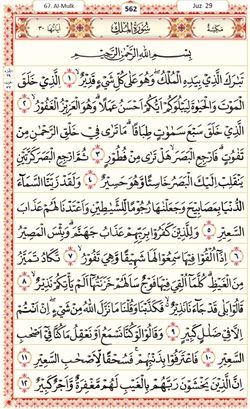 67. Al-Mulk 562 Juz 29
مكية سورة الملك آياتها ٣٠
بِسْمِ اللّٰهِ الرَّحْمٰنِ الرَّحِيْمِ
تَبٰرَكَ الَّذِيْ بِيَدِهِ الْمُلْكُ وَهُوَ عَلٰى كُلِّ شَيْءٍ قَدِيْرٌ ١ الَّذِيْ خَلَقَ
الْمَوْتَ وَالْحَيٰوةَ لِيَبْلُوَكُمْ اَيُّكُمْ اَحْسَنُ عَمَلًا وَهُوَ الْعَزِيْزُ الْغَفُوْرُ ٢ الَّذِيْ
خَلَقَ سَبْعَ سَمٰوٰتٍ طِبَاقًا مَا تَرٰى فِيْ خَلْقِ الرَّحْمٰنِ مِنْ
تَفٰوُتٍ فَارْجِعِ الْبَصَرَ هَلْ تَرٰى مِنْ فُطُوْرٍ ٣ ثُمَّ ارْجِعِ الْبَصَرَ كَرَّتَيْنِ
يَنْقَلِبْ اِلَيْكَ الْبَصَرُ خَاسِئًا وَهُوَ حَسِيْرٌ ٤ وَلَقَدْ زَيَّنَّا السَّمَاءَ
الدُّنْيَا بِمَصَابِيْحَ وَجَعَلْنٰهَا رُجُوْمًا لِّلشَّيٰطِيْنِ وَاَعْتَدْنَا لَهُمْ عَذَابَ
السَّعِيْرِ ٥ وَلِلَّذِيْنَ كَفَرُوْا بِرَبِّهِمْ عَذَابُ جَهَنَّمَ وَبِئْسَ الْمَصِيْرُ
٦ اِذَا اُلْقُوْا فِيْهَا سَمِعُوْا لَهَا شَهِيْقًا وَهِيَ تَفُوْرُ ٧ تَكَادُ تَمَيَّزُ
مِنَ الْغَيْظِ كُلَّمَا اُلْقِيَ فِيْهَا فَوْجٌ سَاَلَهُمْ خَزَنَتُهَا اَلَمْ يَأْتِكُمْ نَذِيْرٌ ٨
قَالُوْا بَلٰى قَدْ جَاءَنَا نَذِيْرٌ فَكَذَّبْنَا وَقُلْنَا مَا نَزَّلَ اللّٰهُ مِنْ شَيْءٍ اِنْ اَنْتُمْ
اِلَّا فِيْ ضَلٰلٍ كَبِيْرٍ ٩ وَقَالُوْا لَوْ كُنَّا نَسْمَعُ اَوْ نَعْقِلُ مَا كُنَّا فِيْ اَصْحٰبِ
السَّعِيْرِ ١٠ فَاعْتَرَفُوْا بِذَنْبِهِمْ فَسُحْقًا لِّاَصْحٰبِ السَّعِيْرِ ١١
اِنَّ الَّذِيْنَ يَخْشَوْنَ رَبَّهُمْ بِالْغَيْبِ لَهُمْ مَّغْفِرَةٌ وَّاَجْرٌ كَبِيْرٌ ١٢